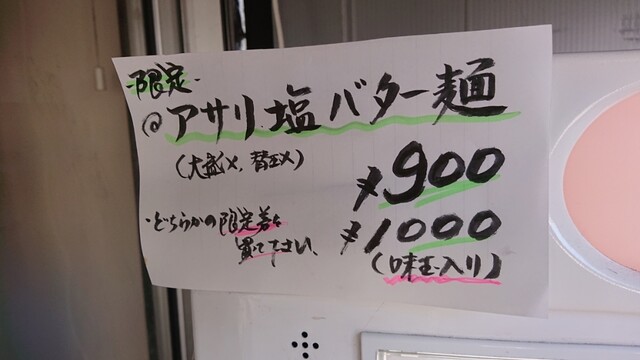 -限定-
@アサリ塩バター麺
(大盛×、替玉×)
¥900
・どちらかの限定券を
買て下さい、
¥1000
(味玉入り)